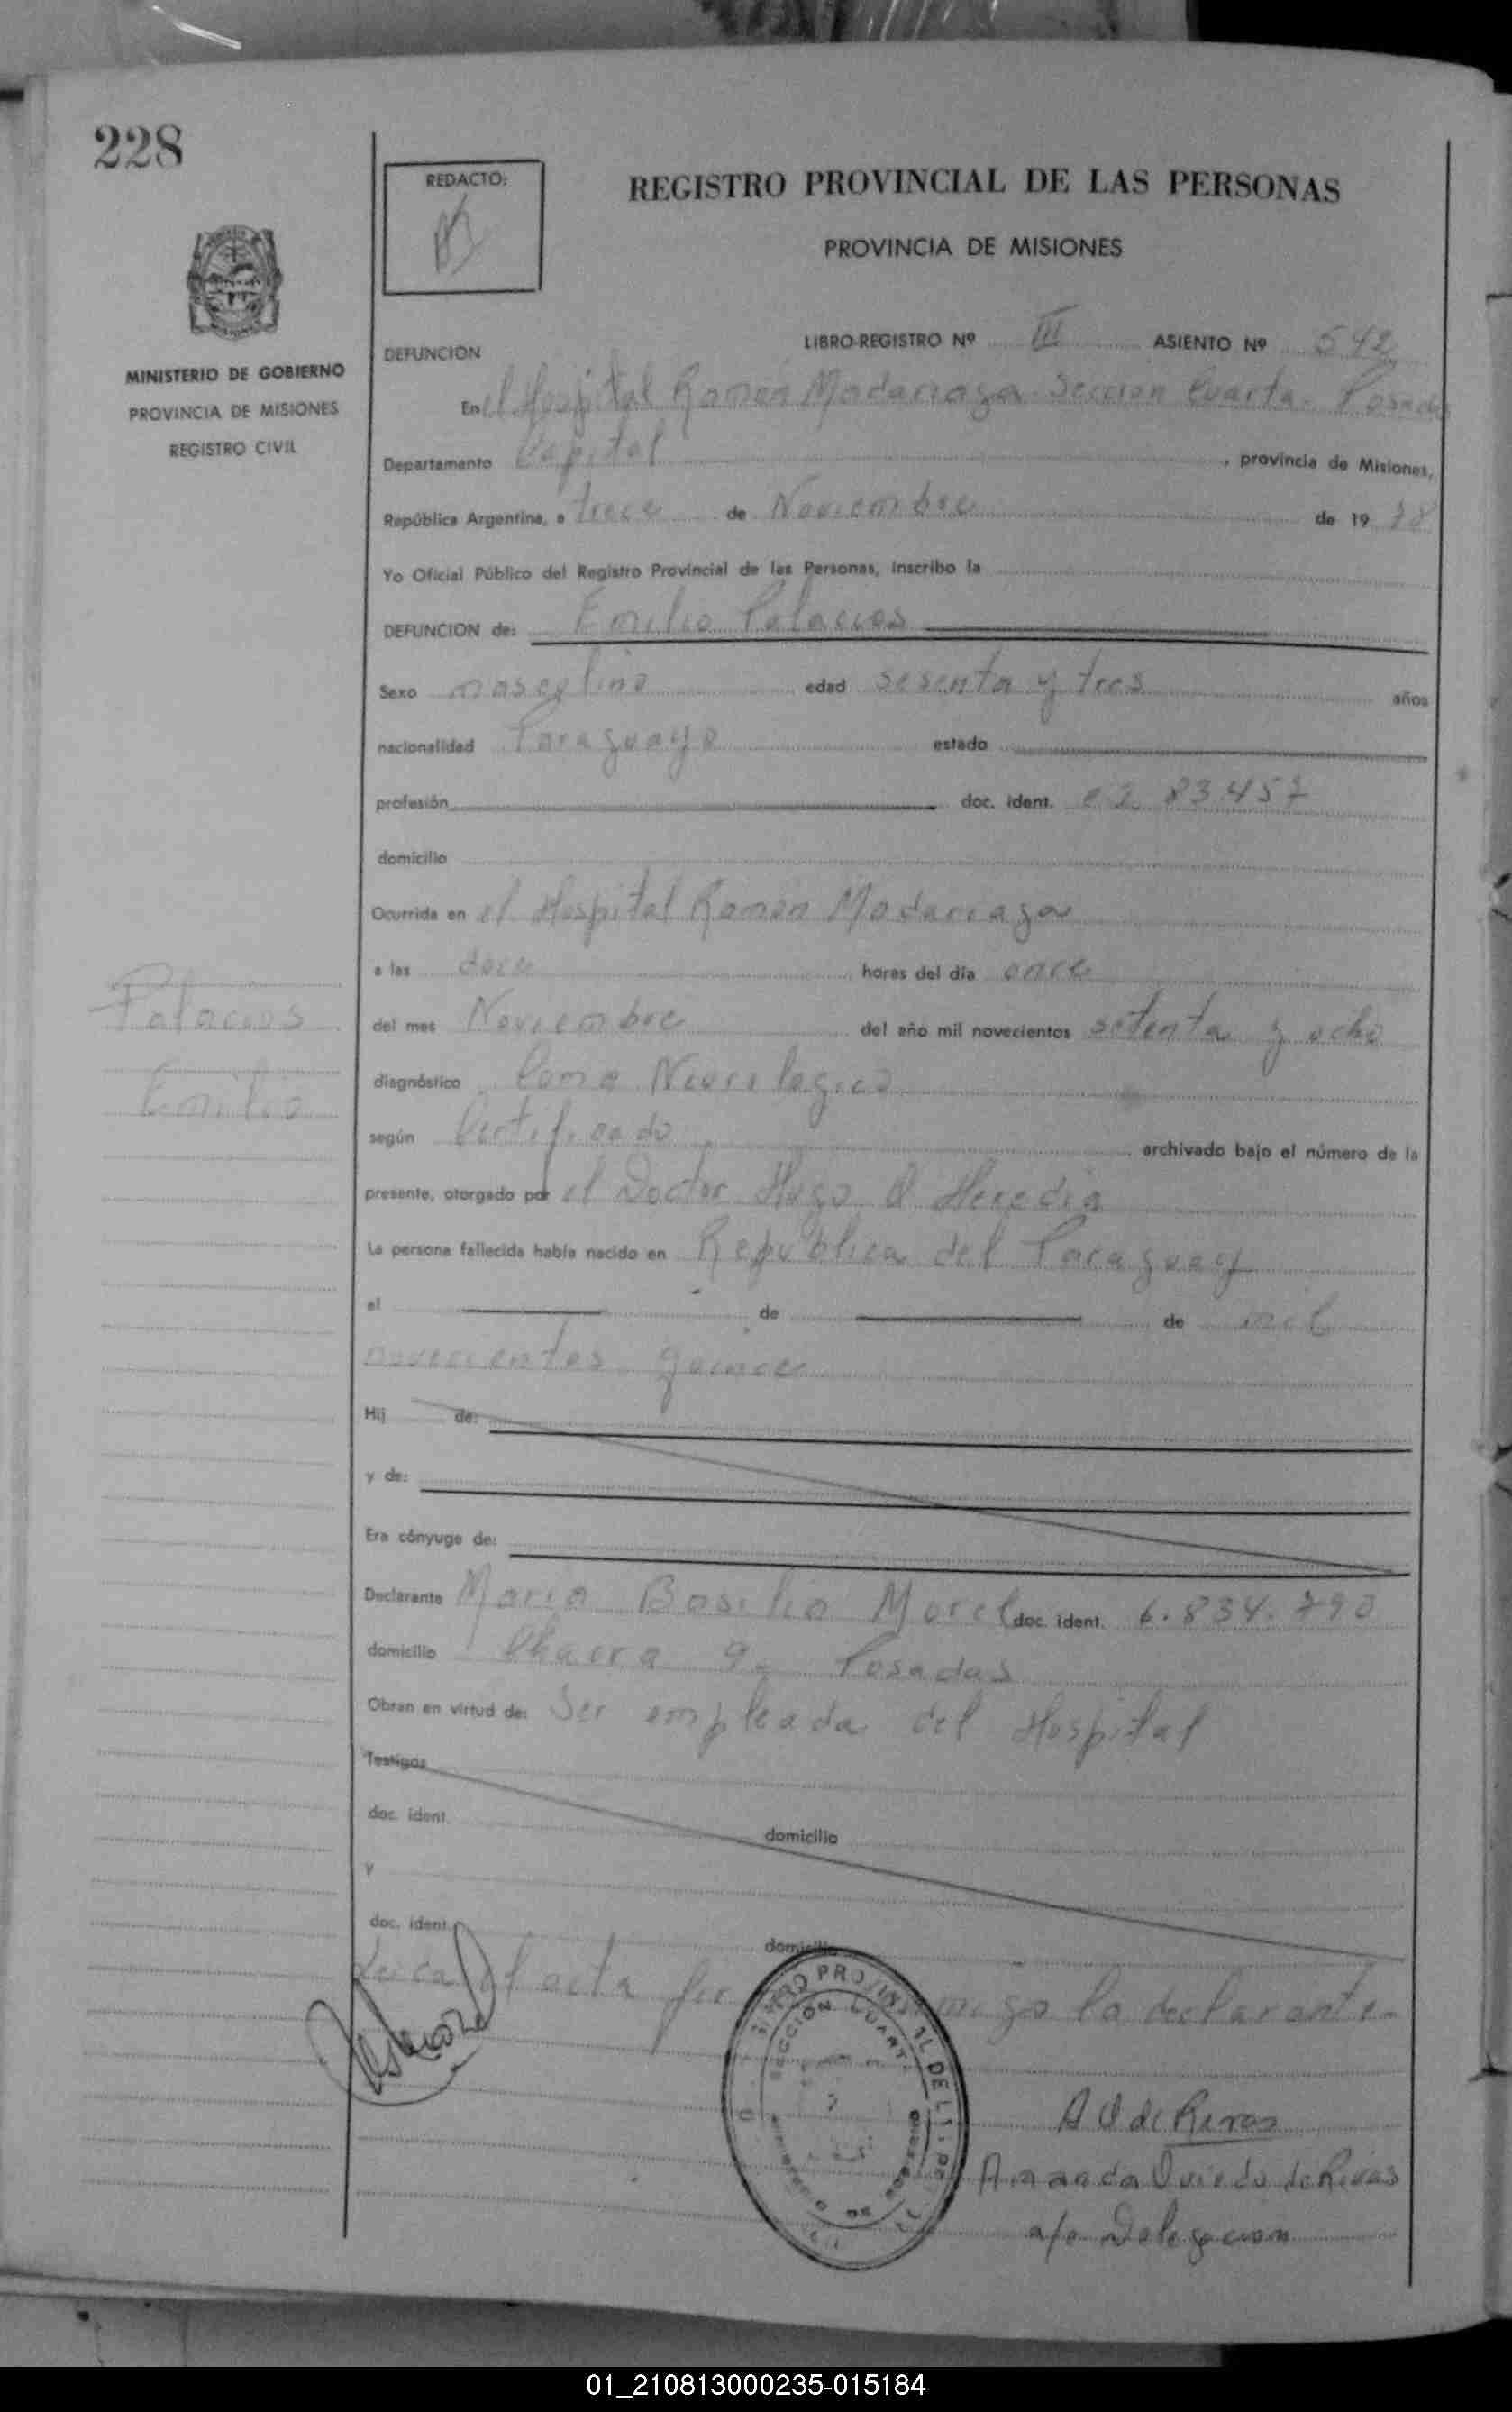 228
REDACTO:
REGISTRO PROVINCIAL DE LAS PERSONAS
PROVINCIA DE MISIONES
MINISTERIO DE GOBIERNO
PROVINCIA DE MISIONES
REGISTRO CIVIL
LIBRO-REGISTRO Nº III ASIENTO Nº 542
DEFUNCION
En el Hospital Ramon Madariaga - Seccion Cuarta - Posadas
Departamento Capital, provincia de Misiones,
República Argentina, a trece de Noviembre de 19 78
Yo Oficial Público del Registro Provincial de las Personas, inscribo la
DEFUNCION de: Emilio Palacios
Sexo masculino edad sesenta y tres años
nacionalidad Paraguayo estado
profesión doc. ident. 83.457
domicilio
Ocurrida en el Hospital Ramon Madariaga
a las doce horas del día once
del mes Noviembre del año mil novecientos setenta y ocho
Palacios
Emilio
diagnóstico Coma Neurologico
según Certificado archivado bajo el número de la
presente, otorgado por el Doctor Hugo O Heredia
La persona fallecida había nacido en Republica del Paraguay
el de de mil
novecientos quince
Hij de:
y de:
Era cónyuge de:
Declarante Maria Basilia Morel doc. ident. 6.834.790
domicilio Chacra 9- Posadas
Obran en virtud de: Ser empleada del Hospital
Testigos
doc. ident. domicilio
y
doc. ident. domicilio
acta la declarante-
SECCION CUARTA
A O de Rivas
Amanda Oviedo de Rivas
a/c Delegacion
01_210813000235-015184